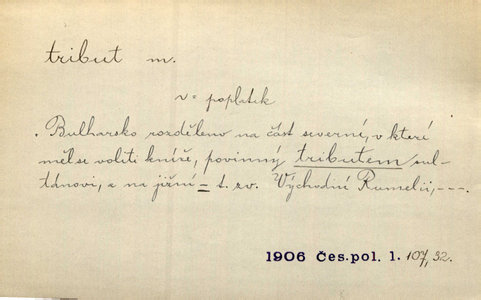 tribut m.
v = poplatek
. Bulharsko rozděleno na část severné, v které
měl se voliti kníže, povinný tributem sul-
tánovi, a na jižní = t. zv. Východní Rumelii, ---.
1906 Čes. pol. 1. 107, 32.